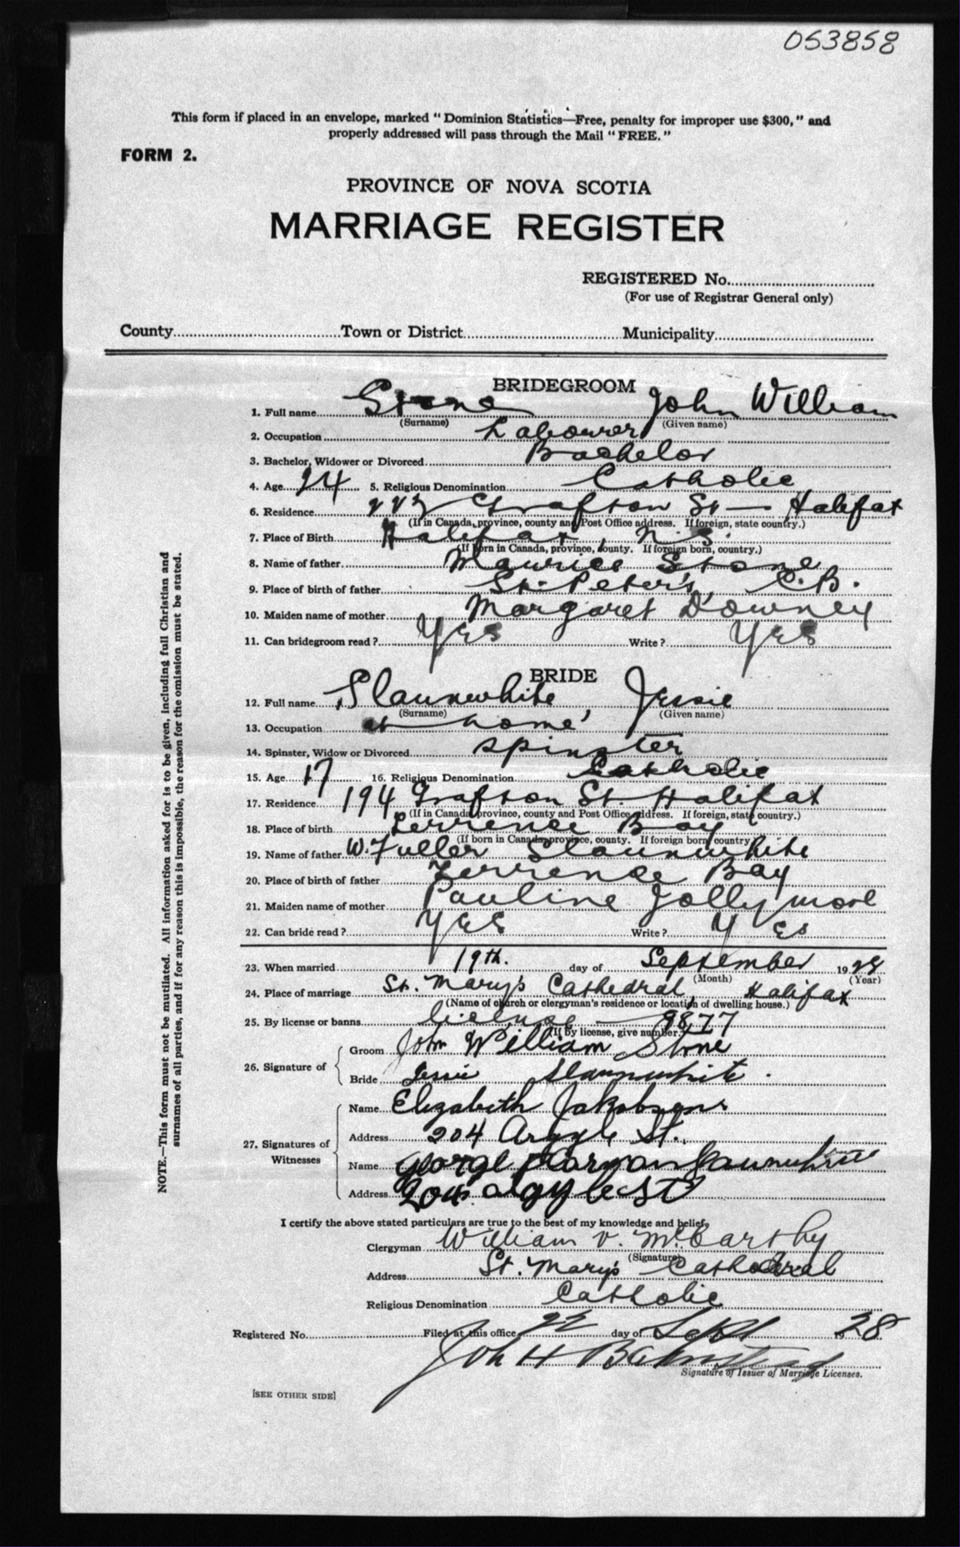 053858
This form if placed in an envelope, marked "Dominion Statistics—Free, penalty for improper use $300," and
properly addressed will pass through the Mail "FREE."
FORM 2.
PROVINCE OF NOVA SCOTIA
MARRIAGE REGISTER
REGISTERED No.
(For use of Registrar General only)
County Town or District Municipality
BRIDEGROOM
1. Full name Stone John William
(Surname) (Given name)
2. Occupation Labourer
3. Bachelor, Widower or Divorced Bachelor
4. Age 24 5. Religious Denomination Catholic
6. Residence Grafton St — Halifax
(If in Canada, province, county and Post Office address. If foreign, state country.)
7. Place of Birth Halifax, N.S.
(If born in Canada, province, county. If foreign born, country.)
8. Name of father Maurice Stone
9. Place of birth of father St. Peter's, C.B.
10. Maiden name of mother Margaret Downey
11. Can bridegroom read? Yes Write? Yes
BRIDE
12. Full name Slaunwhite Jessie
(Surname) (Given name)
13. Occupation at home
14. Spinster, Widow or Divorced Spinster
15. Age 17 16. Religious Denomination Catholic
17. Residence 194 Grafton St. Halifax
(If in Canada, province, county and Post Office address. If foreign, state country.)
18. Place of birth Terrence Bay
(If born in Canada, province, county. If foreign born country)
19. Name of father W. Fuller Slaunwhite
20. Place of birth of father Terrence Bay
21. Maiden name of mother Pauline Jollymore
22. Can bride read? Yes Write? Yes
23. When married 19th. day of September 1928
(Month) (Year)
24. Place of marriage St. Mary's Cathedral, Halifax
(Name of church or clergyman's residence or location of dwelling house.)
25. By license or banns license — 9877
(If by license, give number.)
26. Signature of
Groom John William Stone
Bride Jessie Slaunwhite.
27. Signatures of Witnesses
Name Elizabeth
Address 204 Argyle St.
Name George Slaunwhite
Address 204 argyle St
I certify the above stated particulars are true to the best of my knowledge and belief,
Clergyman William V. McCarthy
(Signature)
Address St. Mary's Cathedral
Religious Denomination Catholic
Registered No. Filed at this office 22 day of Sept 1928
John H Barnstead
Signature of Issuer of Marriage Licenses.
[SEE OTHER SIDE]
NOTE.—This form must not be mutilated. All information asked for is to be given, including full Christian and
surnames of all parties, and if for any reason this is impossible, the reason for the omission must be stated.